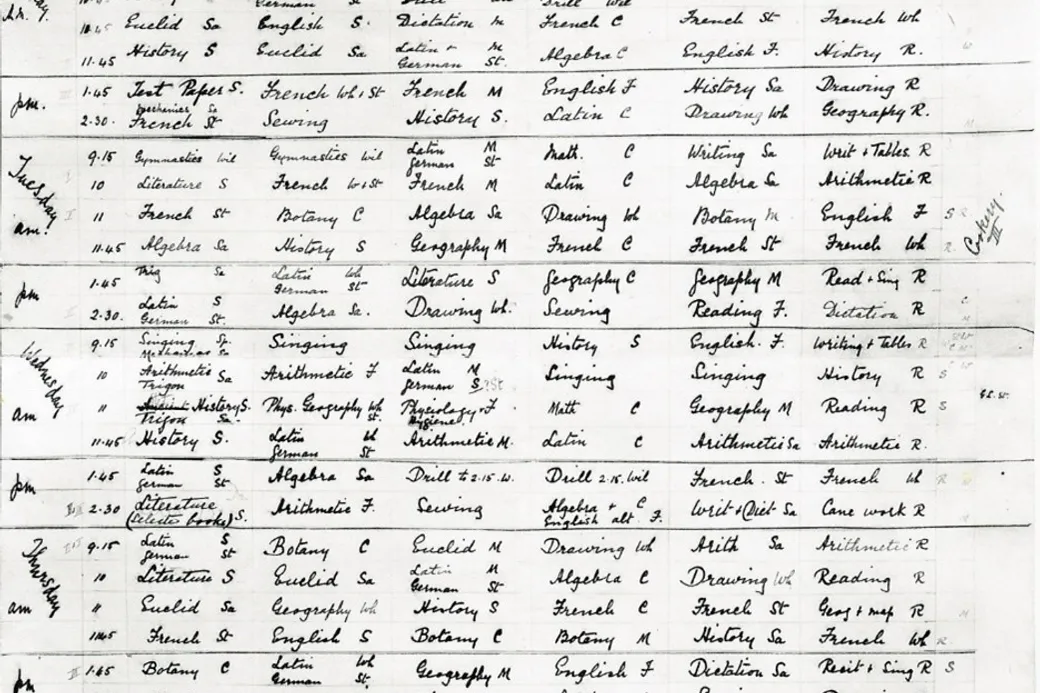 German
10.45 Euclid Sa English S. Dictation M French C French St French Wh
11.45 History S Euclid Sa Latin + M Algebra C English F. History R.
German St.
pm. 1.45 Test Paper S. French Wh + St French M English F History Sa Drawing R
Mechanics Sa
2.30. French St Sewing History S. Latin C Drawing Wh Geography R.
Tuesday am. 9.15 Gymnastics Wil Gymnastics Wil Latin M Math. C Writing Sa Writ + Tables. R
German St
10 Literature S French W + St French M Latin C Algebra Sa Arithmetic R
11 French St Botany C Algebra Sa Drawing Wh Botany M English F S R
11.45 Algebra Sa History S Geography M French C French St French Wh R
Cookery III
pm 1.45 Trig Sa Latin Wh Literature S Geography C Geography M Read + Sing R
German St
2.30. Latin S Algebra Sa. Drawing Wh. Sewing Reading F. Dictation R
German St.
Wednesday am 9.15 Singing Singing Singing History S English. F. Writing + Tables R
Mechanics Sa
10 Arithmetic Sa Arithmetic F Latin M Singing Singing History R S
Trigon German S St
11 History S. Phys. Geography Wh Physiology + F Math C Geography M Reading R S
Trigon Sa St Hygiene
11.45 History S. Latin Wh Arithmetic M. Latin C Arithmetic Sa Arithmetic R.
German St
pm 1.45 Latin S Algebra Sa Drill to 2.15. W. Drill 2.15. Wil French. St French Wh R
German St
2.30 Literature Arithmetic F. Sewing Algebra + C Writ + Dict Sa Cane work R
(Selected books) S. English alt F.
Thursday am 9.15 Latin S Botany C Euclid M Drawing Wh Arith Sa Arithmetic R
German St
10 Literature S Euclid Sa Latin M Algebra C Drawing Wh Reading R
German St
11 Euclid Sa Geography Wh History S French C French St Geog + map R
11.45 French St English S Botany C Botany M History Sa French Wh R
pm 1.45 Botany C Latin Wh Geography M English F Dictation Sa Recit + Sing R S
German St.